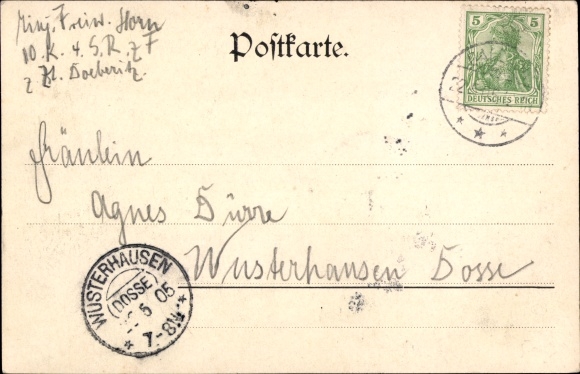 Einj. Freiw. Horn
10. K. 4. G. R. z F
z Zt. Doeberitz.
Postkarte.
5 5
DEUTSCHES REICH
Fräulein
Agnes Dürre
Wusterhausen Dosse
WUSTERHAUSEN
(DOSSE)
5 05
7-8N